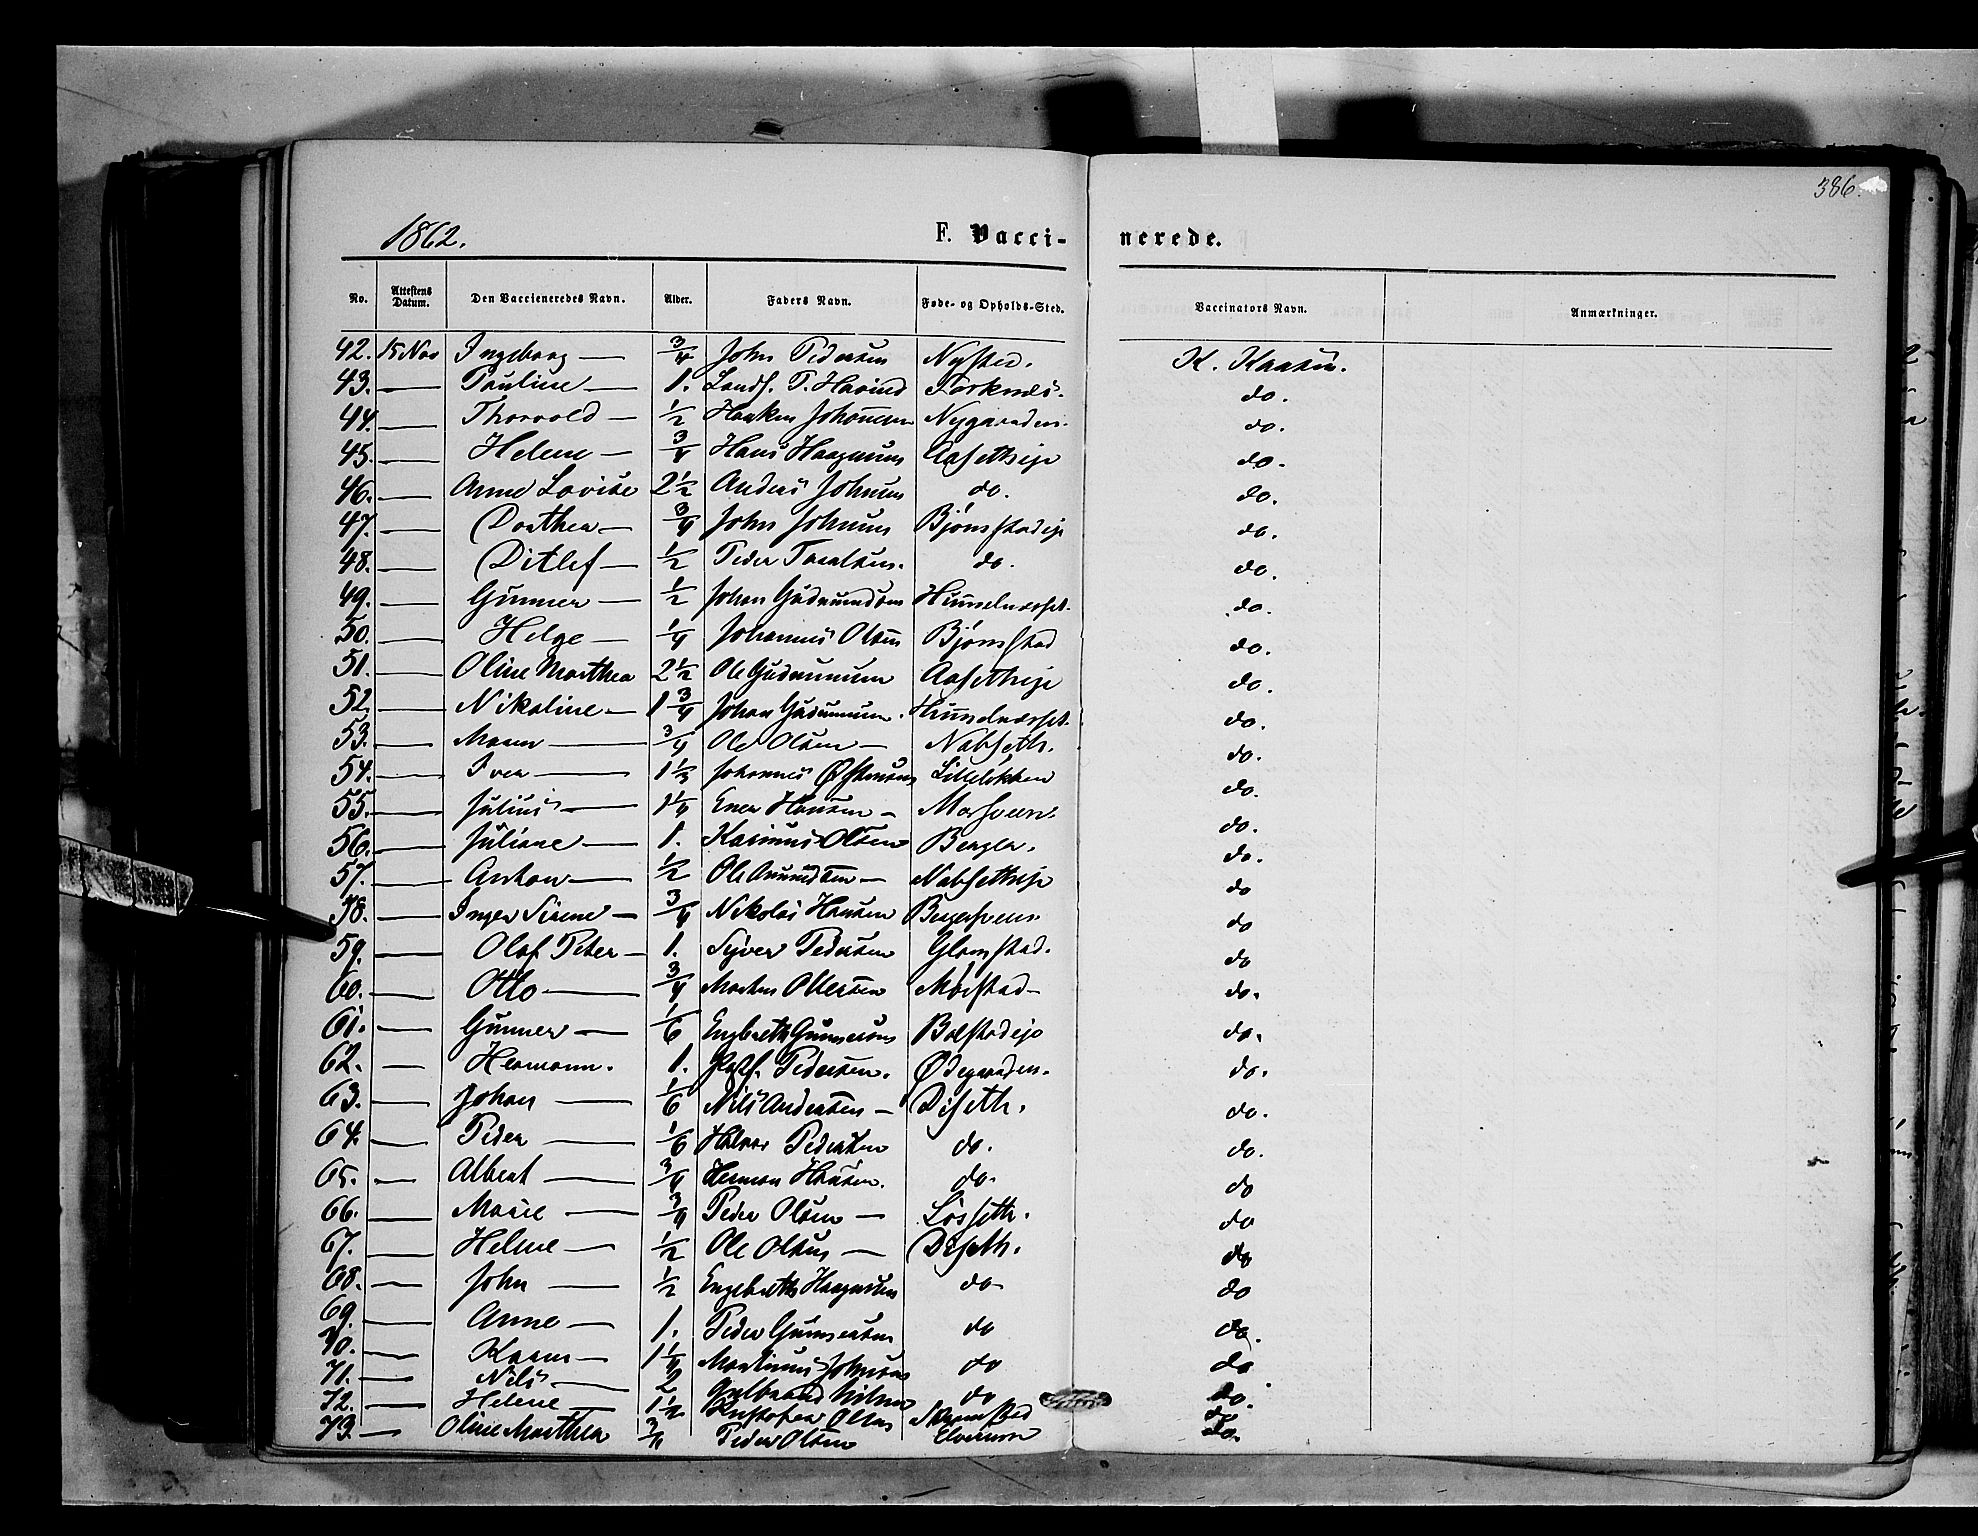 386.
1862. F. Vacci- nerede.
No. Attestens Datum. Den Vaccieneredes Navn. Alder. Faders Navn. Føde- og Opholds-Sted. Vaccinators Navn. Anmærkninger.
42. 15 Nov Ingeborg — 3/4 John Pedersen Nysted.
43. — Pauline — 1. do.
44. — Thorvold — 1/2 Haaken Johannesen Nygaarden. do.
45. — Helene — 3/4 Hans Haagensen Aasetheje do.
46. — Anne Lovise 2 1/2 Anders Johnsen do. do.
47. — Dorthea — 3/4 John Johnsen Bjørnstadeje do.
48. — Ditlef — 1/2 Peder do. do.
49. — Gunner — 1/2 Johan Gudmundsen do.
50. — Helge — 1/4 Johannes Olsen Bjørnstad do.
51. — Oline Marthea 2 1/2 Ole Gudmunsen Aasetheje do.
52. — Nikoline — 1 3/4 Johan Gudmunsen. do.
53. — Maren — 3/4 Ole Olsen — Nabseth. do.
54. — Iver — Johannes Østensen Lilleløkken do.
55. — Julius — 1 1/4 Ener Hansen — do.
56. — Juliane — 1. Karinus Olsen Berger. do.
57. — Anton — 1/2 Ole Amundsen — Nabsetheje do
58. — Inger Sirene — 3/4 Nikolai Hansen do
59. — Olaf Peter — 1. Syver Pedersen Glomstad. do
60. — Otto — 3/4 Morten Ottersen Møistad — do.
61. — Gunner — 1/6 Engbreth Gunnersens Bolstadeje do.
62. — Hermann. 1. Pedersen. Ødegaarden. do.
63. — Johan — 1/6 Nils Andersen — Diseth. do.
64. — Peder — 1/6 Halvor Pedersen do. do.
65. — Albert — 3/4 Herman Hansen. do. do
66. — Marie — 3/4 Peder Olsen — Løsseth. do
67. — Helene — 1/2 Ole Olsen — Diseth. do
68. — John — 1/2 Engebreth Haagensen do do
69. — Anne — 1. Peder Gunnersen do do.
70. — Karen — 1 1/4 Martinus Johnsen do do
71. — Nils — 2 Gulbrand Nilsen do do.
72. — Helene — 1 1/2 Kristofer Olsen do
73. — Oline Marthea 3/4 Peder Olsen Elverum do.